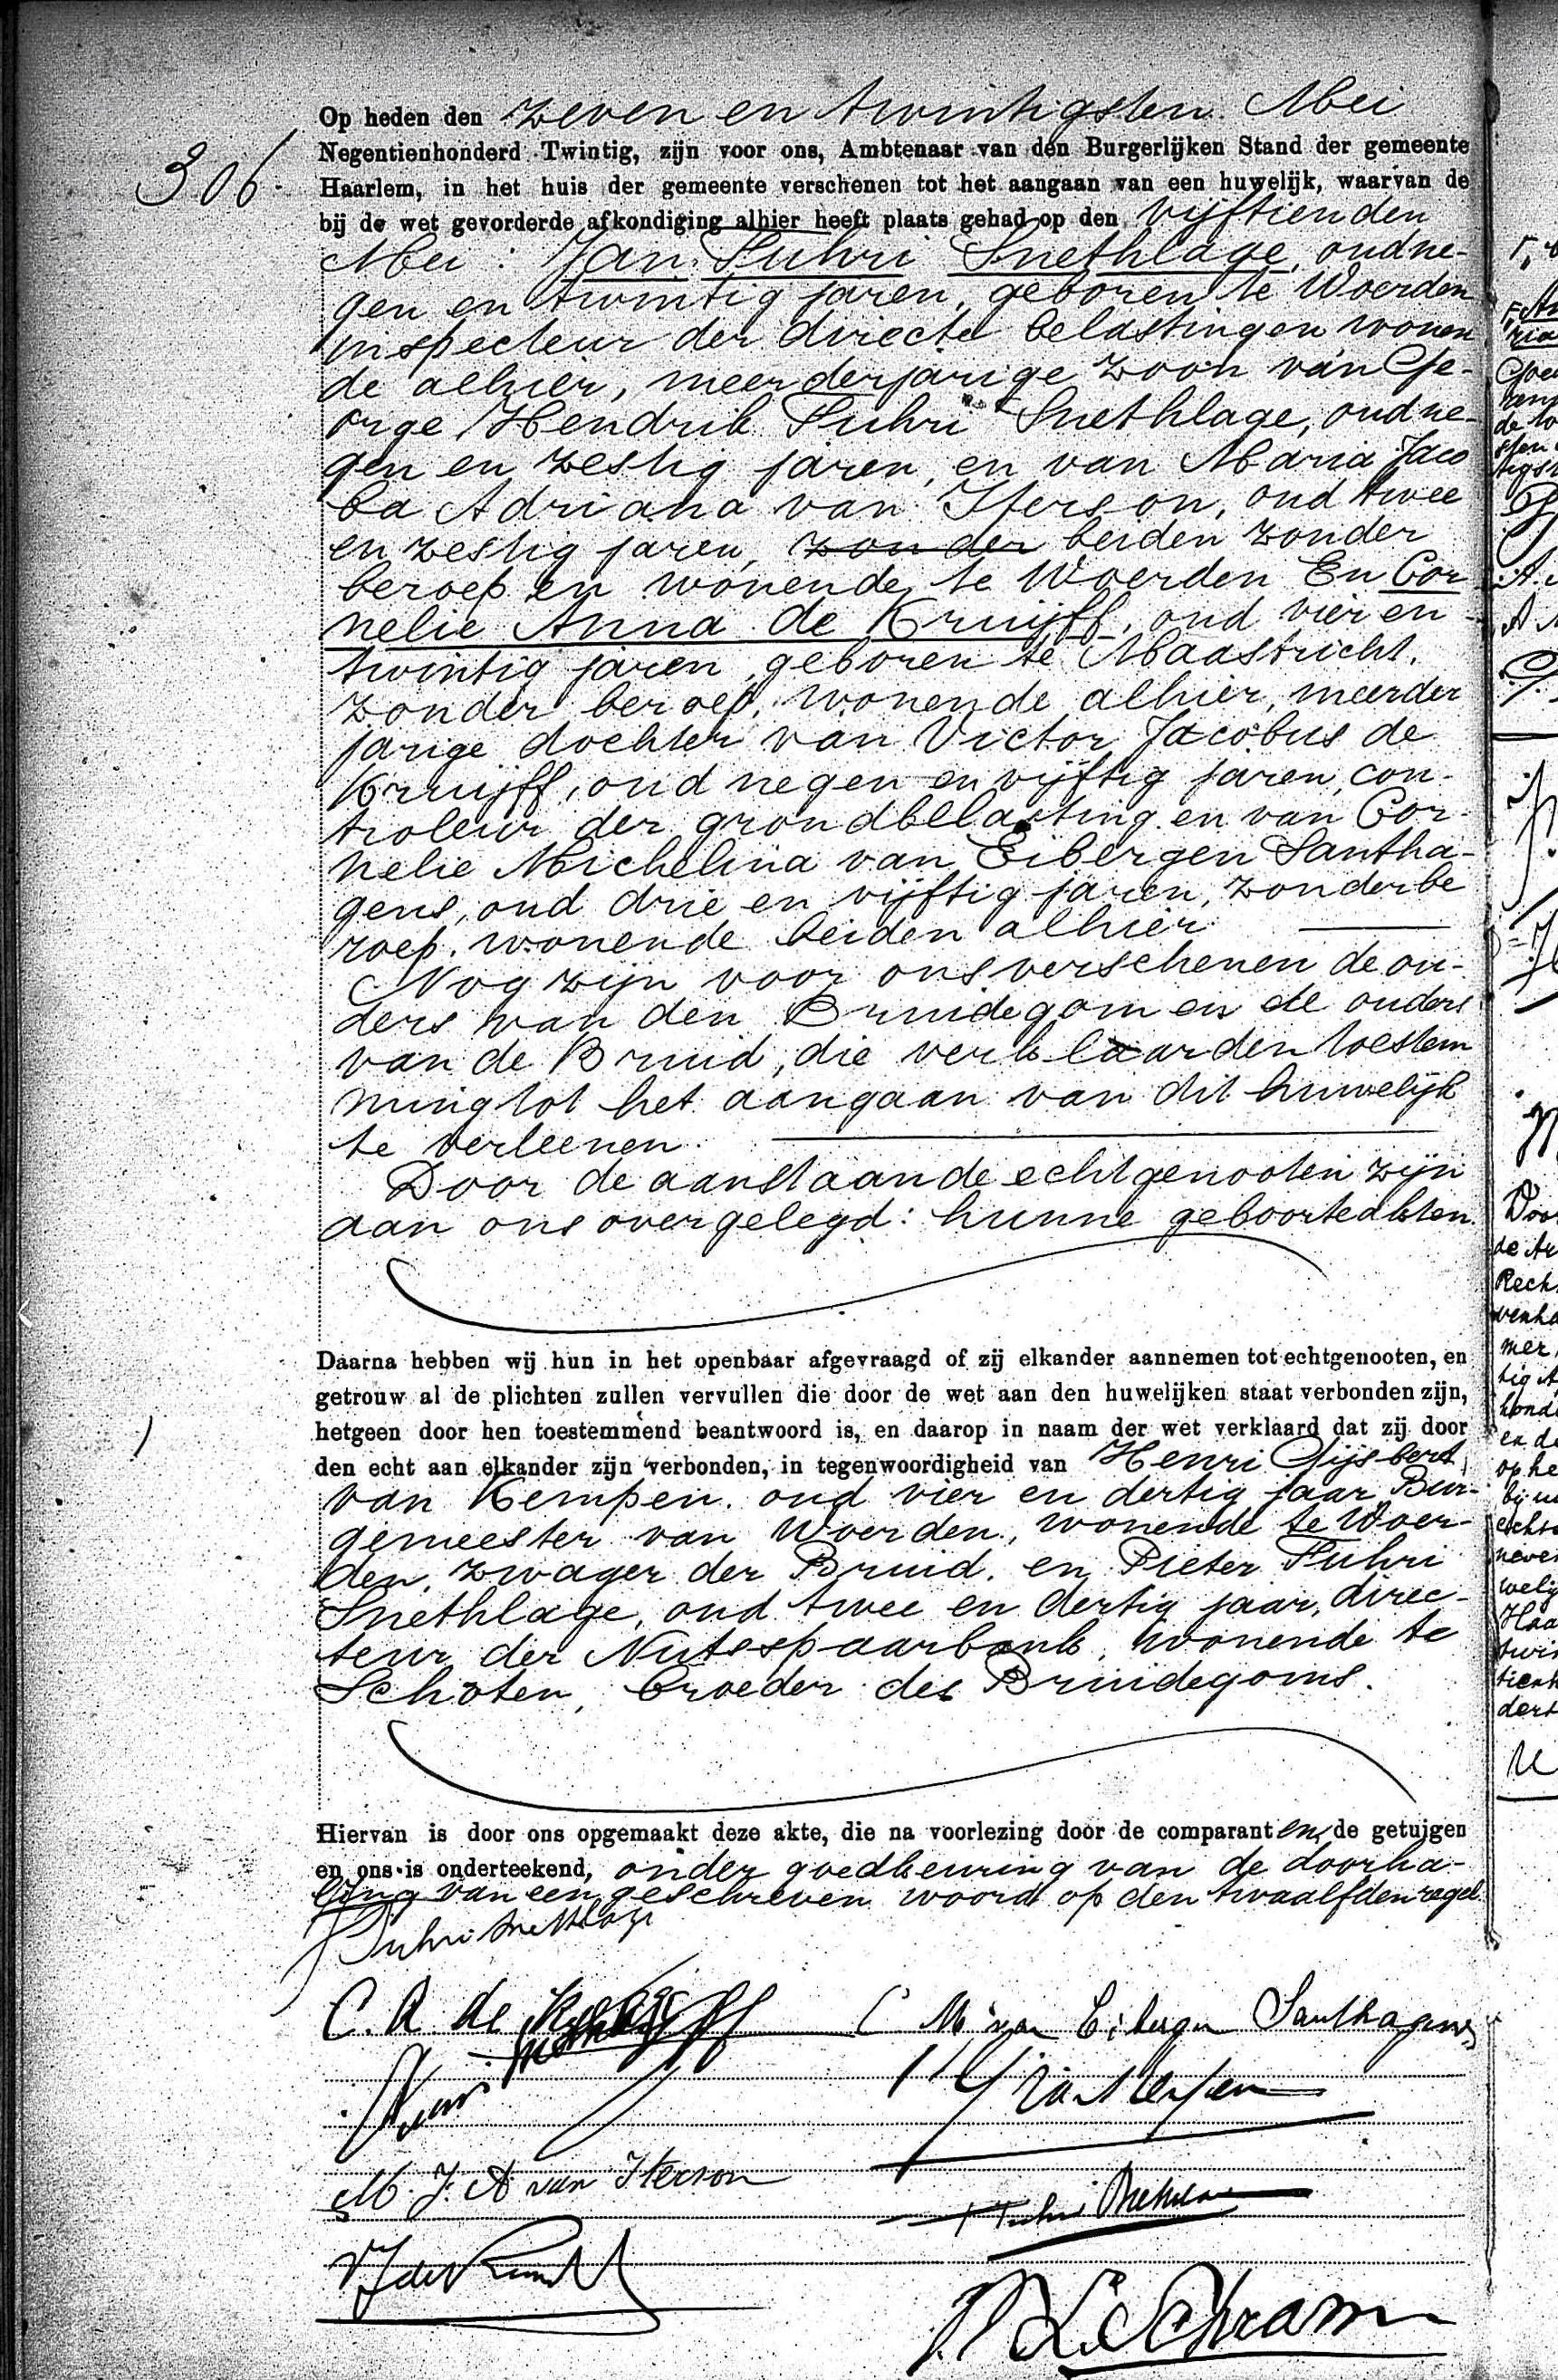 306.
Op heden den zeven en twintigsten Mei
Negentienhonderd Twintig, zijn voor ons, Ambtenaar van den Burgerlijken Stand der gemeente
Haarlem, in het huis der gemeente verschenen tot het aangaan van een huwelijk, waarvan de
bij de wet gevorderde afkondiging alhier heeft plaats gehad op den vijftienden
Mei : Jan Fuhri Snethlage, oud ne-
gen en twintig jaren, geboren te Woerden
inspecteur der directe belastingen wonen
de alhier, meerderjarige zoon van Ge-
orge Hendrik Fuhri Snethlage, oud ne-
gen en zestig jaren, en van Maria Jaco
ba Adriana van Iterson, oud twee
en zestig jaren, zonder beiden zonder
beroep en wonende te Woerden En Cor
nelie Anna de Kruijff, oud vier en
twintig jaren, geboren te Maastricht,
zonder beroep, wonende alhier, meerder
jarige dochter van Victor Jacobus de
Kruijff, oud negen en vijftig jaren, con-
troleur der grondbelasting en van Cor-
nelie Michelina van Eibergen Santha-
gens, oud drie en vijftig jaren, zonder be
roep, wonende beiden alhier
Nog zijn voor ons verschenen de ou-
ders van den Bruidegom en de ouders
van de Bruid, die verklaarden toestem
ming tot het aangaan van dit huwelijk
te verleenen.
Door de aanstaande echtgenooten zijn
aan ons overgelegd: hunne geboorteakten.
Daarna hebben wij hun in het openbaar afgevraagd of zij elkander aannemen tot echtgenooten, en
getrouw al de plichten zullen vervullen die door de wet aan den huwelijken staat verbonden zijn,
hetgeen door hen toestemmend beantwoord is, en daarop in naam der wet verklaard dat zij door
den echt aan elkander zijn verbonden, in tegenwoordigheid van Henri Gijsbert
van Kempen, oud vier en dertig jaar, Bur-
gemeester van Woerden, wonende te Woer-
den, zwager der Bruid, en Pieter Fuhri
Snethlage, oud twee en dertig jaar, direc-
teur der Nutsspaarbank, wonende te
Schoten, broeder des Bruidegoms.
Hiervan is door ons opgemaakt deze akte, die na voorlezing door de comparanten, de getuigen
en ons is onderteekend, onder goedkeuring van de doorha-
ling van een geschreven woord op den twaalfden regel.
J Fuhri Snethlage
C. A de Kruijff C M van Eibergen Santhagens
M. J. A van Iterson
Fuhri Snethlage
VJ de Kruijff
Schram